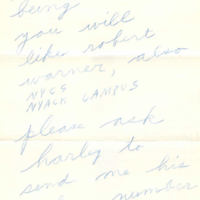 being
you will
like robert
warner, also
NYCS
NYACK CAMPUS
please ask
harley to
send me his
number